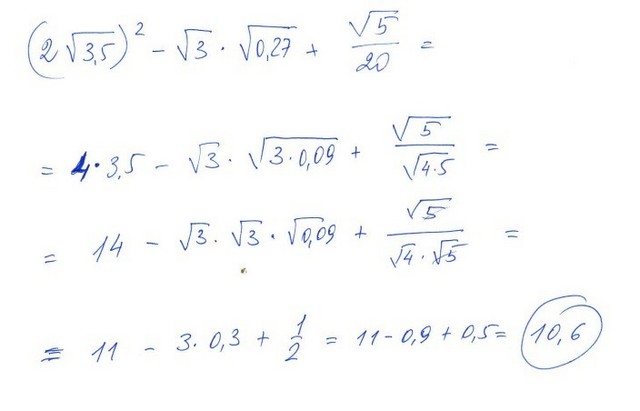 (2√3,5)² − √3 · √0,27 + √5/20 =
= 4 · 3,5 − √3 · √3·0,09 + √5/√4·5 =
= 14 − √3 · √3 · √0,09 + √5/√4 · √5 =
= 11 − 3 · 0,3 + 1/2 = 11 − 0,9 + 0,5 = 10,6